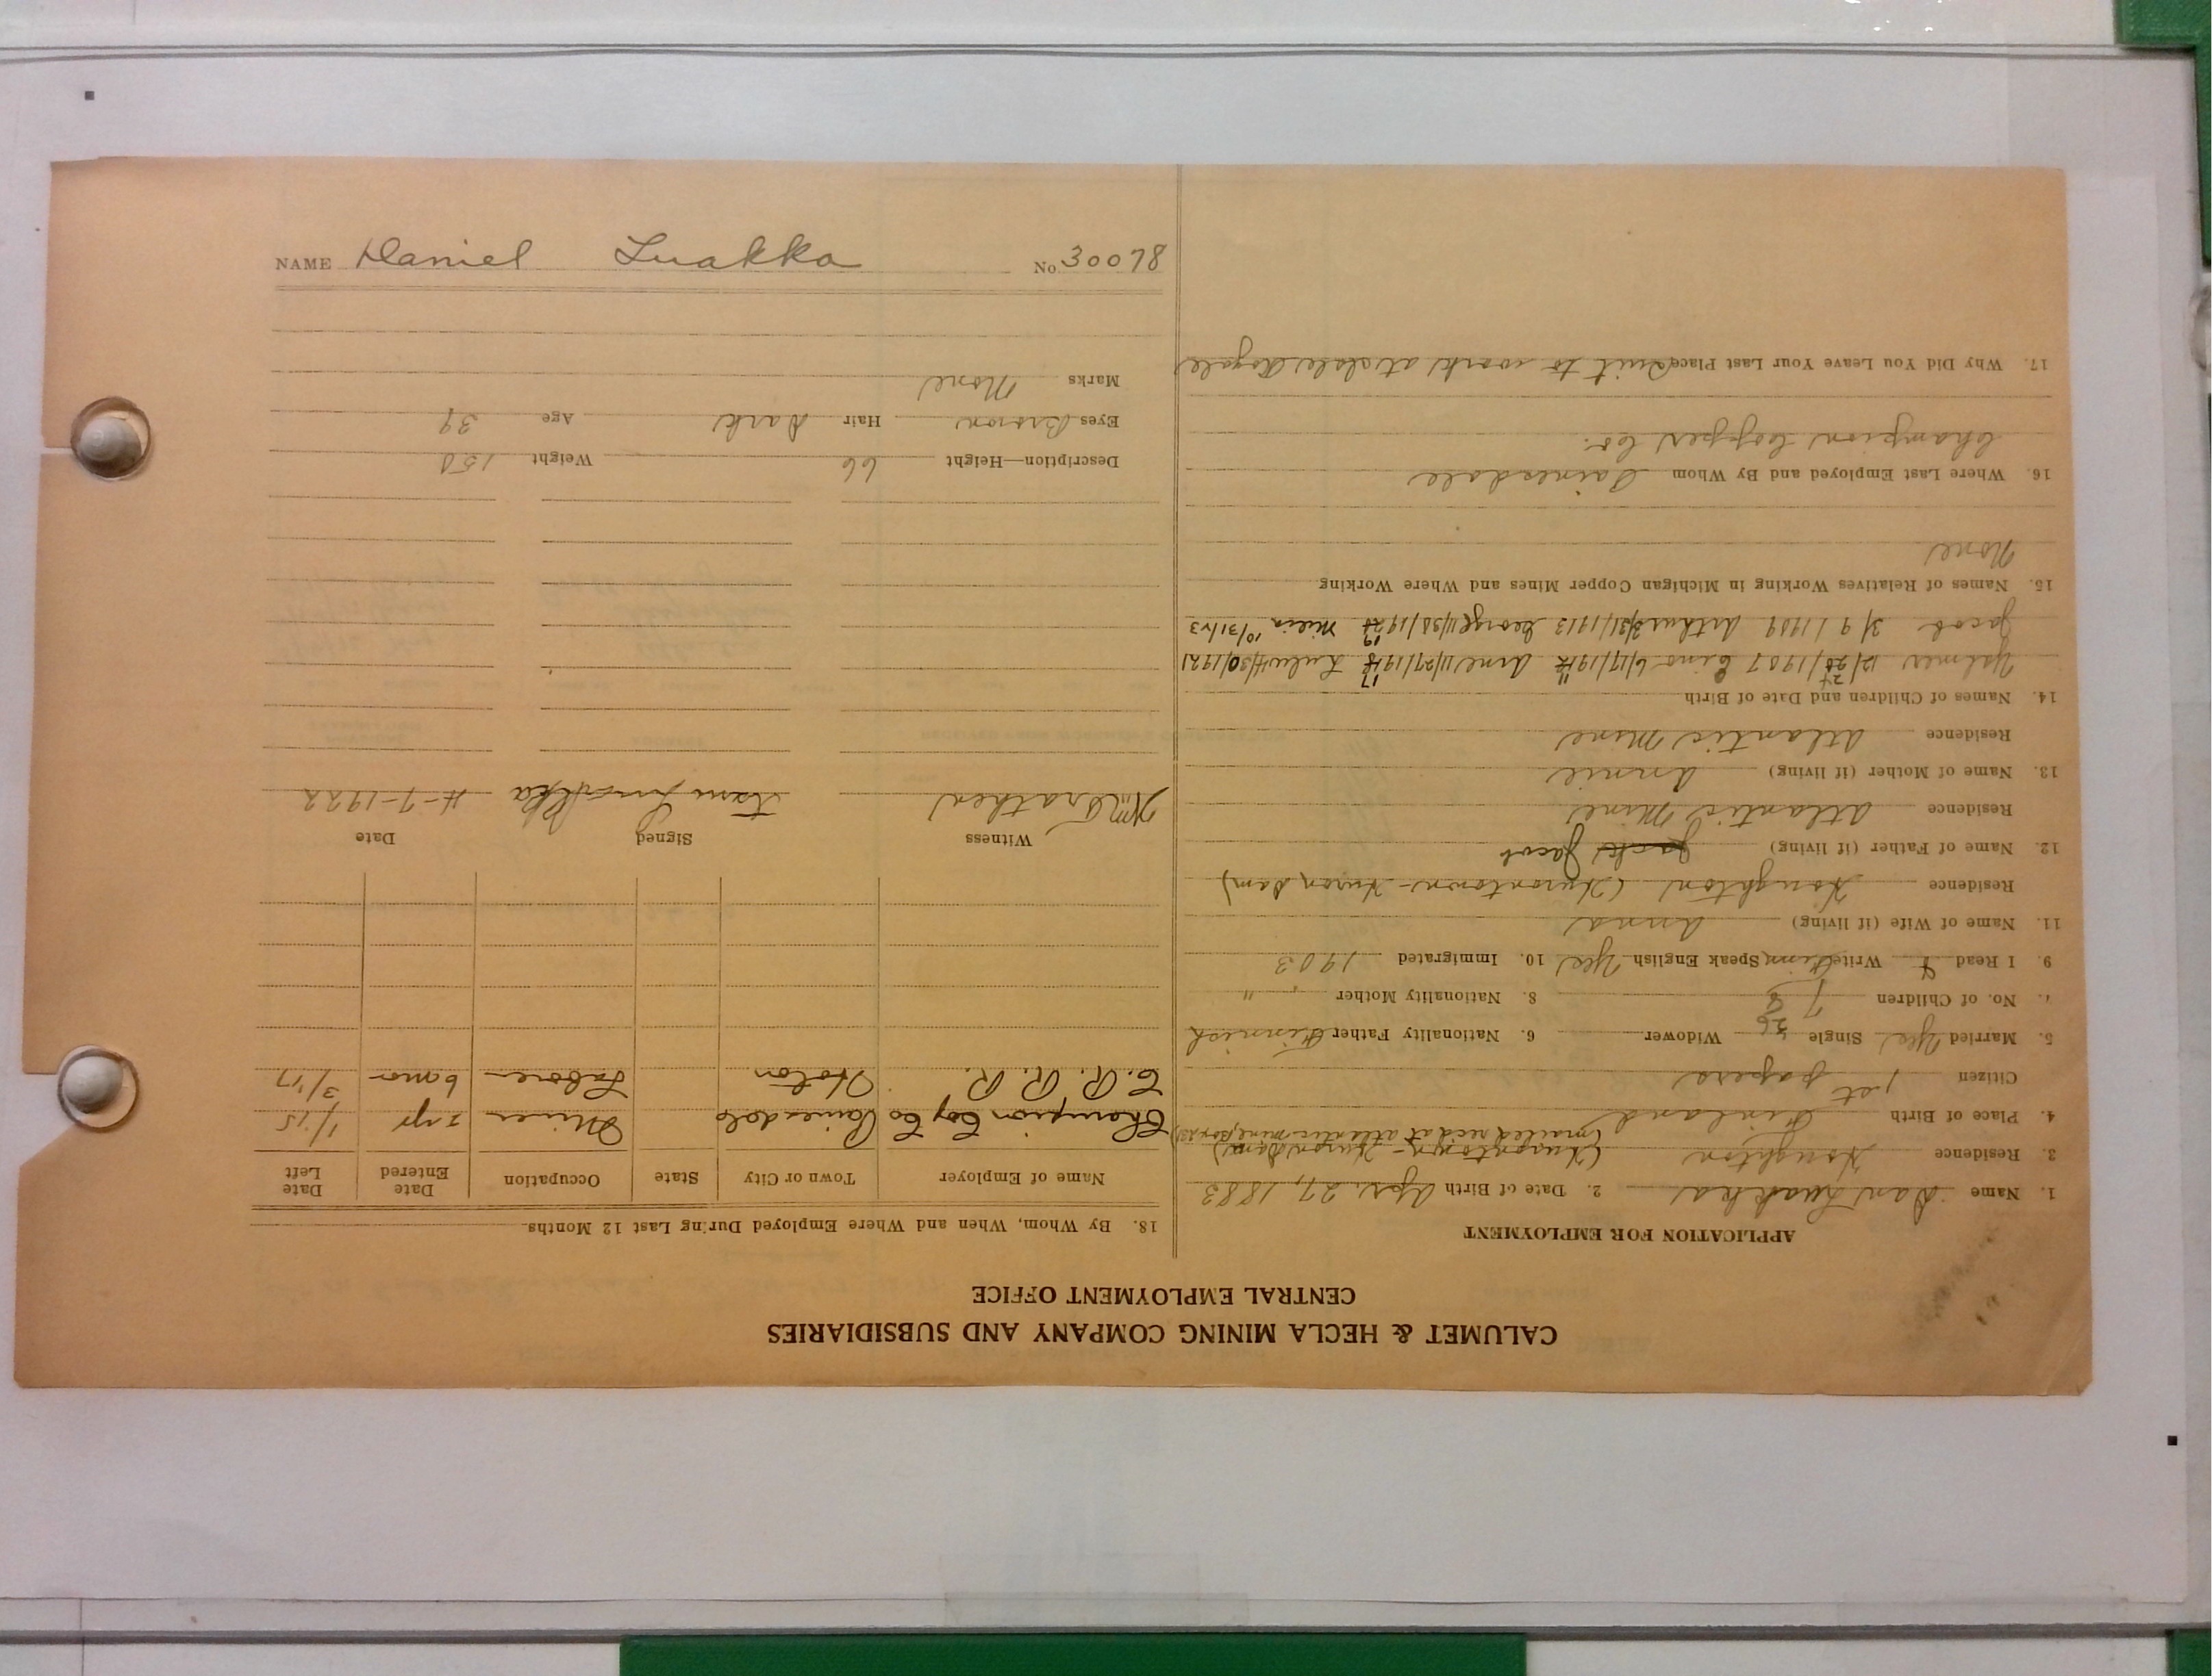 NAME Daniel Luakka No 30078
CALUMET & HECLA MINING COMPANY AND SUBSIDIARIES
CENTRAL EMPLOYMENT OFFICE
APPLICATION FOR EMPLOYMENT
1. Name Dan Luakka 2. Date of Birth Apr. 27, 1883
(Hurontown - Huron Dam)
3. Residence Houghton
(mailed recd at atlantic mine, Box 231)
4. Place of Birth Finland
Citizen 1st papers
5. Married Yes Single 36 Widower 6. Nationality Father Finnish
7. No. of Children 7 8 8. Nationality Mother "
9. I Read & Write Finn Speak English Yes 10. Immigrated 1903
11. Name of Wife (if living) Anna
Residence Houghton (Hurontown - Huron Dam)
12. Name of Father (if living) Jack Jacob
Residence Atlantic Mine
13. Name of Mother (if living) Annie
Residence Atlantic Mine
14. Names of Children and Date of Birth
Hjalmer 12/28/1907 Eino 6/17/1912 Arne 11/27/1918 Lulu 4/30/1921
24 11 17
Jacob 3/9/1909 Arthur 3/31/1913 George 11/28/1921 Milia 10/31/23
19
15. Names of Relatives Working in Michigan Copper Mines and Where Working
None
16. Where Last Employed and By Whom Painesdale
Champion Copper Co.
17. Why Did You Leave Your Last Place Quit to work at Isle Royale
18. By Whom, When and Where Employed During Last 12 Months
Name of Employer Town or City State Occupation Date Entered Date Left
Champion Cop Co Painesdale Miner 2 yr 1/15
C. R. R. R. Hoton Laborer 6 mo 3/17
Witness Signed Date
4-7-1922
Description—Height 66 Weight 150
Eyes Brown Hair Dark Age 39
Marks None